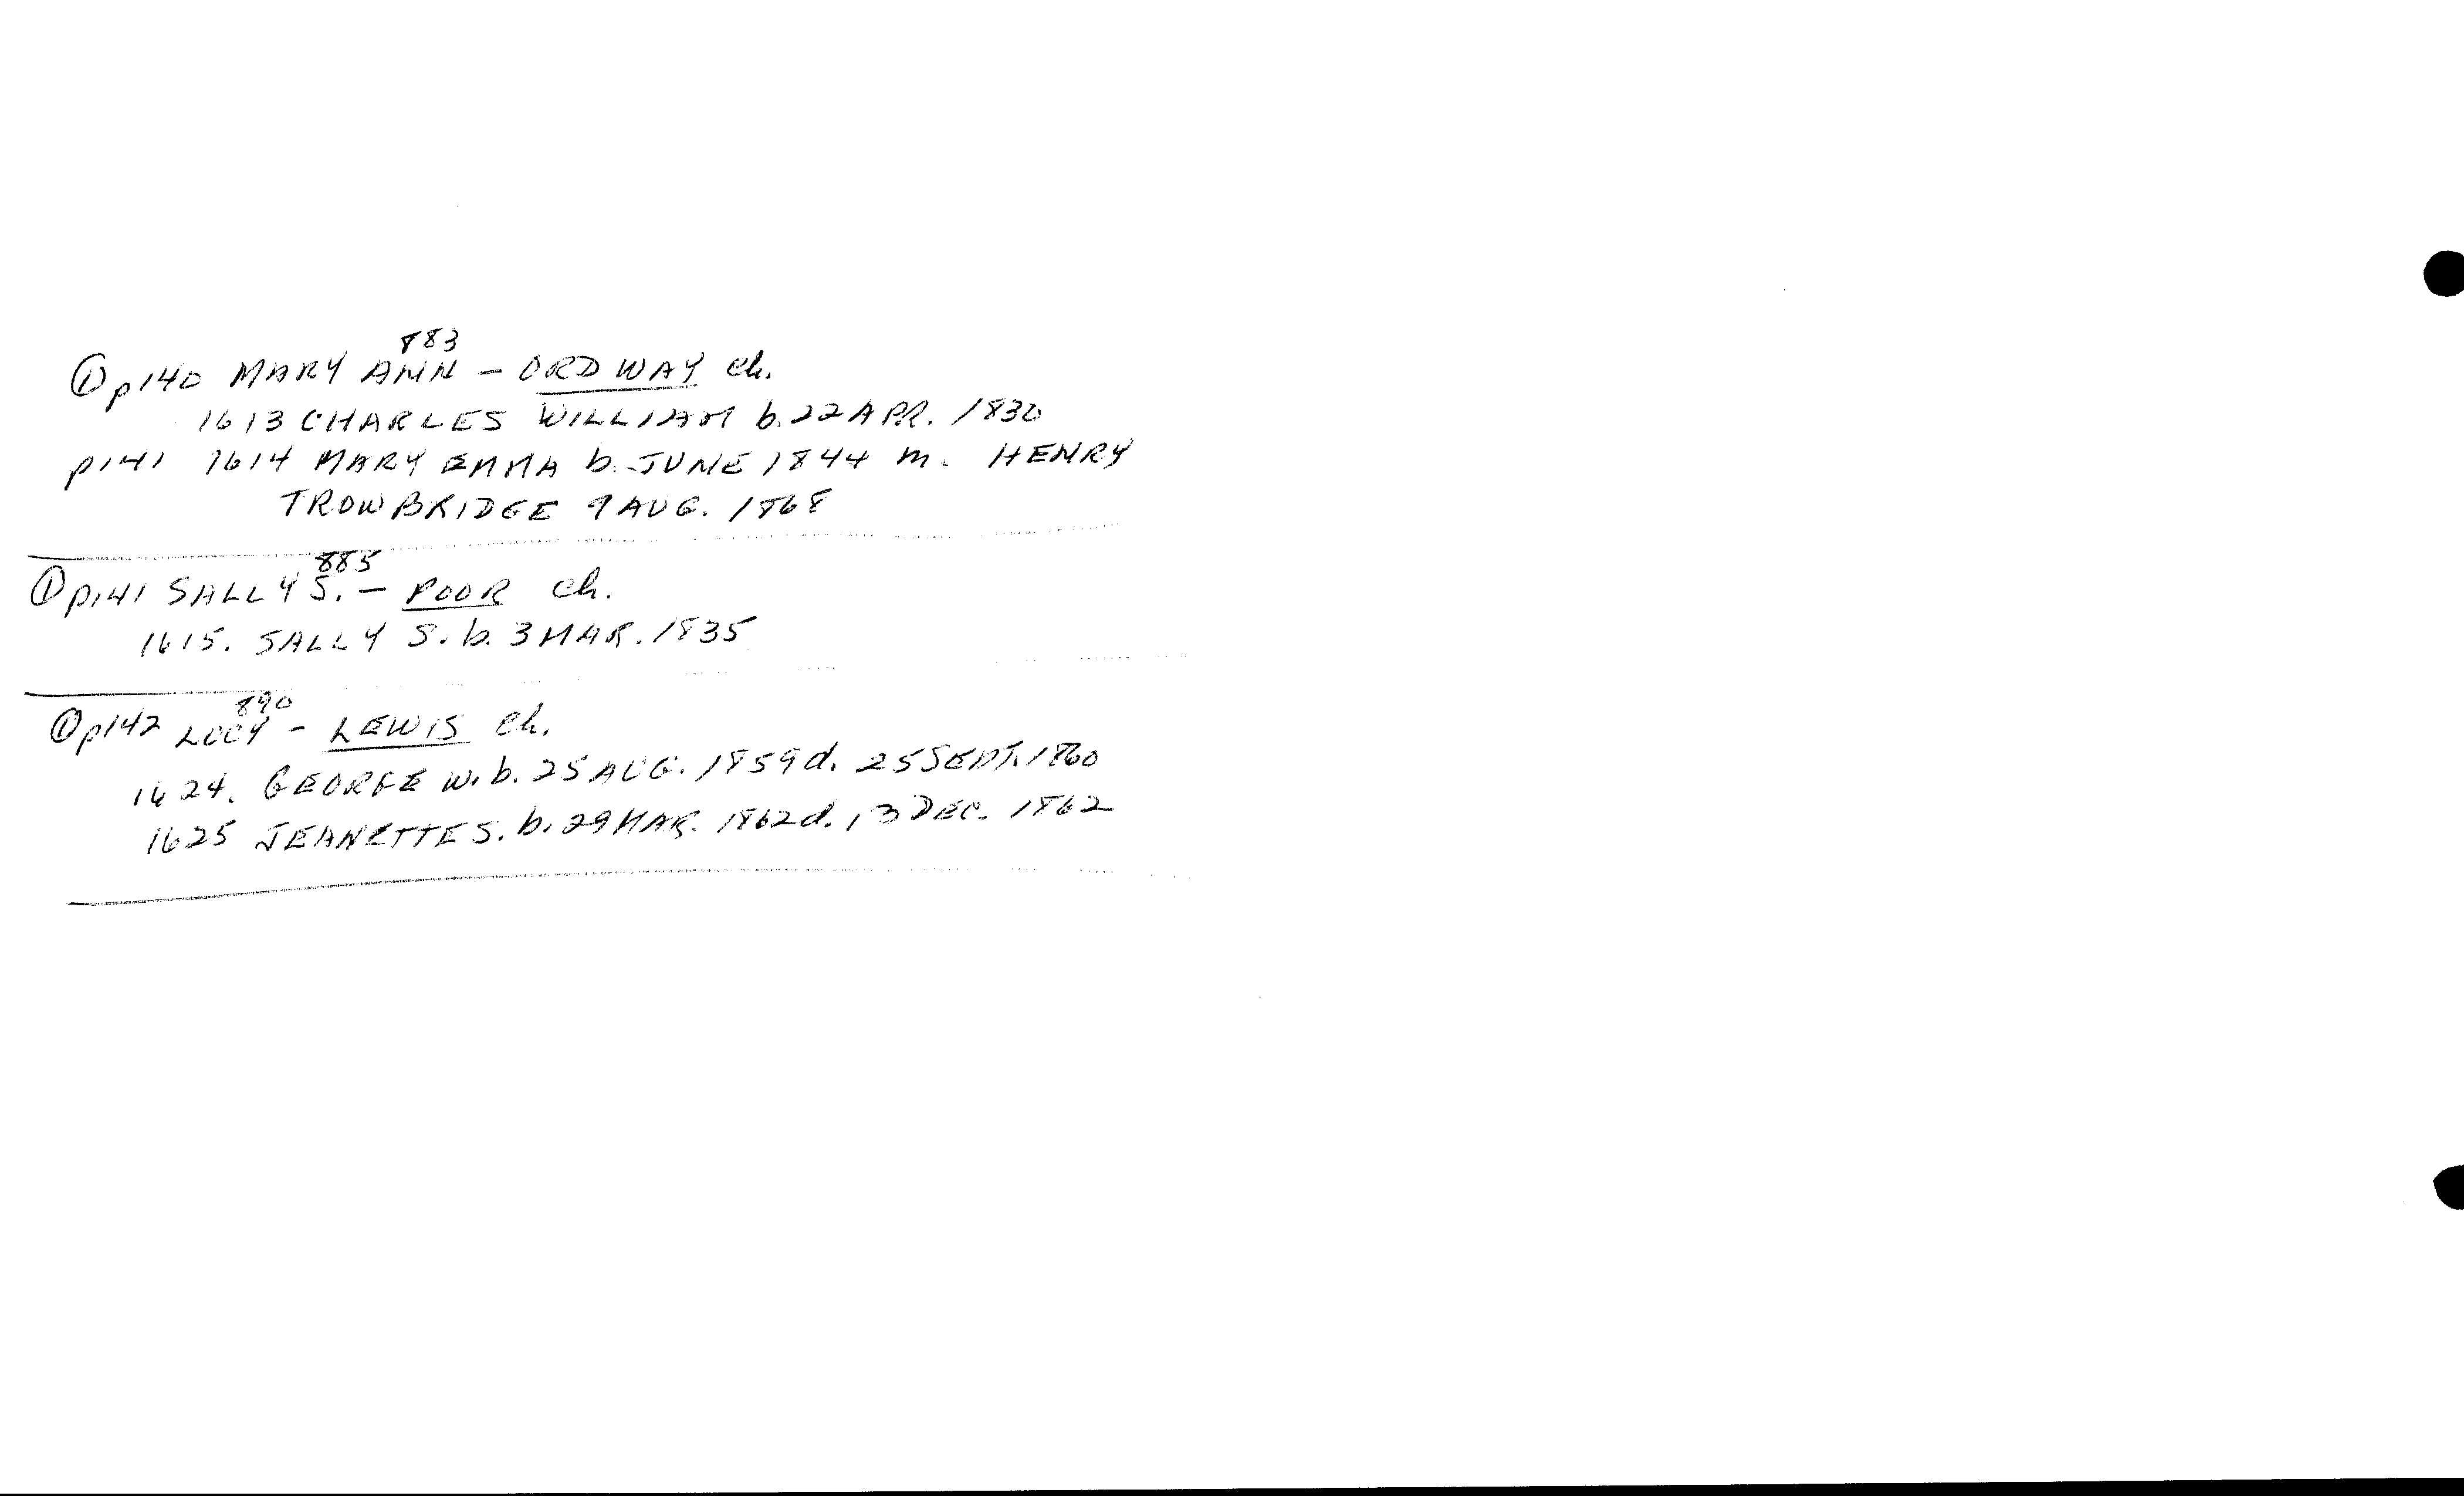 883
① p140 MARY ANN - ORDWAY ch.
1613 CHARLES WILLIAM b. 22 APR. 1830
p141 1614 MARY EMMA b. JUNE 1844 m. HENRY
TROWBRIDGE 9 AUG. 1868
885
① p141 SALLY S. - POOR ch.
1615. SALLY S. b. 3 MAR. 1835
890
① p142 LUCY - LEWIS ch.
1624. GEORGE W. b. 25 AUG. 1859 d. 25 SEPT. 1860
1625 JEANETTE S. b. 29 MAR. 1862 d. 13 DEC. 1862